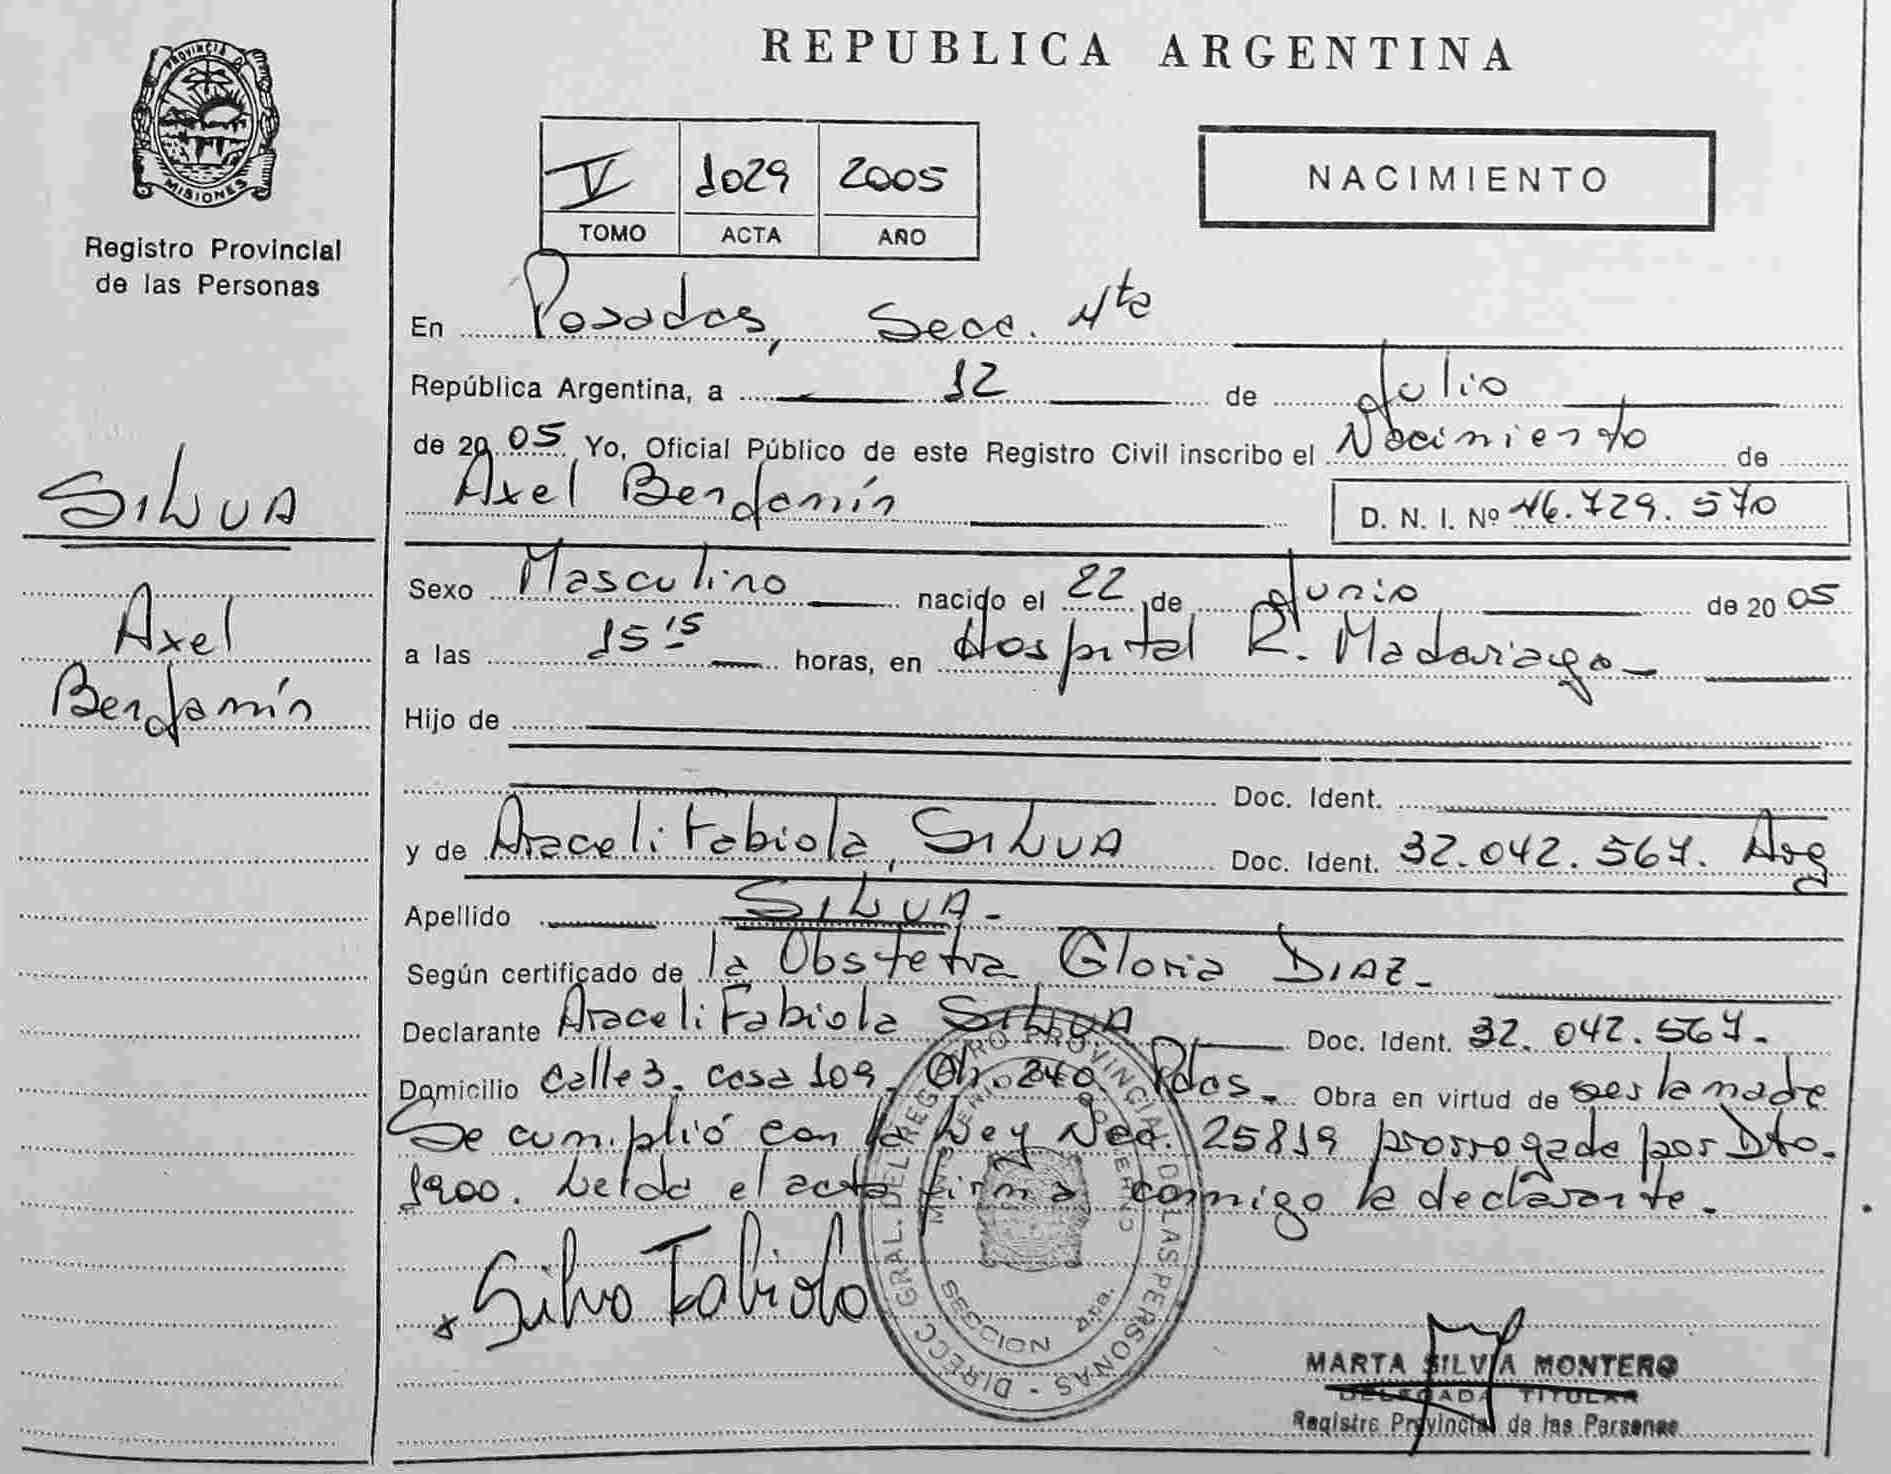 PROVINCIA DE
MISIONES
Registro Provincial
de las Personas
SILVA
Axel
Benjamín
REPUBLICA ARGENTINA
V 1029 2005
TOMO ACTA AÑO
NACIMIENTO
En Posadas, Secc. 4ta
República Argentina, a 12 de Julio
de 2005 Yo, Oficial Público de este Registro Civil inscribo el Nacimiento de
Axel Benjamín D. N. I. Nº 46.729.570
Sexo Masculino nacido el 22 de Junio de 2005
a las 15 15 horas, en Hospital R. Madariaga
Hijo de
Doc. Ident.
y de Araceli Fabiola, SILVA Doc. Ident. 32.042.567. Arg
Apellido SILVA.
Según certificado de la Obstetra Gloria DIAZ.
Declarante Araceli Fabiola SILVA Doc. Ident. 32.042.567.
Domicilio Calle 3. casa 109. Ch. 240. Pdas. Obra en virtud de ser la madre
Se cumplió con la Ley Nac. 25819 prorrogada por Dto.
1900. Leída el acta firma conmigo la declarante.
x Silva Fabiola
DIRECC GRAL. DEL REGISTRO PROVINCIAL DE LAS PERSONAS
SECCION 4ta.
MARTA SILVIA MONTERO
DELEGADA TITULAR
Registro Provincial de las Personas